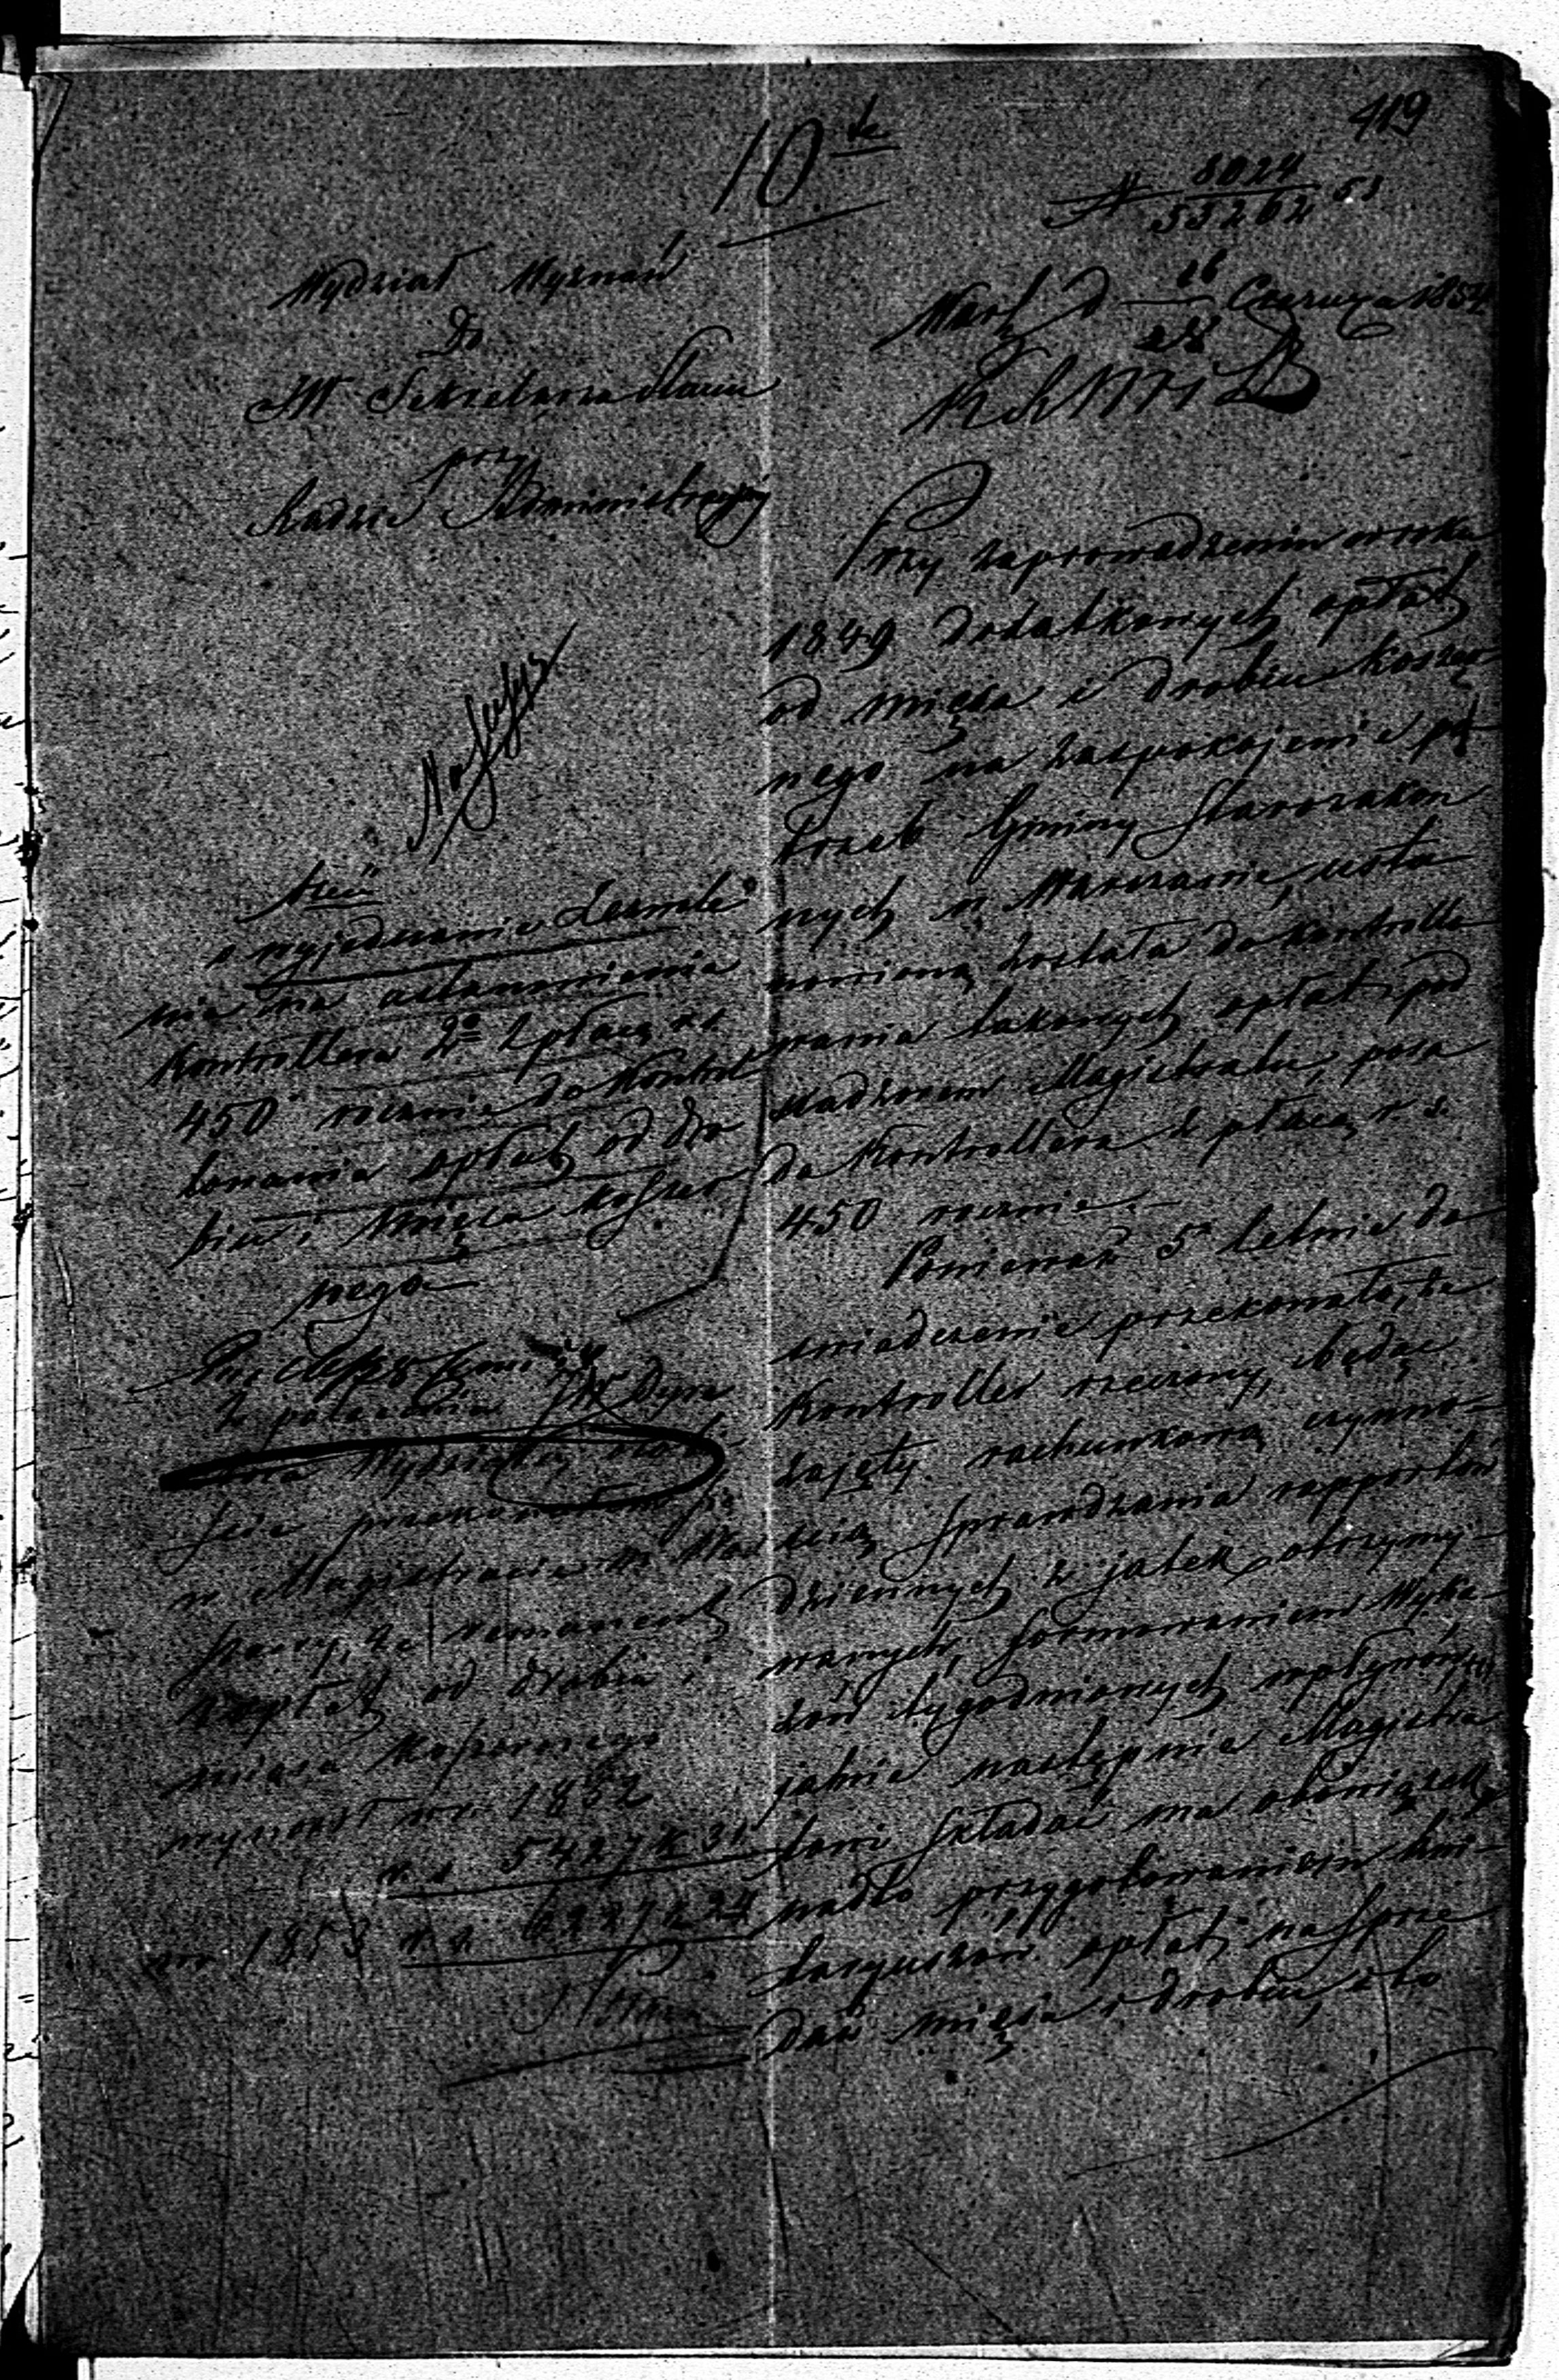 419
10.te
N 8024
53262 53
Wydział Wyznań
Do
JW Sekretarza Stanu
przy
Radzie Administracyjnej
Warsz d 16
28 Czerwca 1854
Przy zaprowadzeniu w roku
1849 dodatkowych opłat
od mięsa i drobiu koszer
nego na zaspokojenie po
trzeb Gminy Starozakon
nych w Warszawie, usta
nowioną została do kontrollo
wania takowych opłat pod
nadzorem Magistratu, posa
da Kontrollera z płacą r s.
450 rocznie.
Ponieważ 5 letnie do
świadczenie przekonało, że
Kontroller rzeczony, będąc
zajęty rachunkową czynno-
ścią, sprawdzania rapportów
dziennych z jatek otrzymy-
wanych, formowaniem Wyka
zów tygodniowych wpływów,
jakie następnie Magistra
towi składać ma obowiązek,
nadto przygotowaniem kwi-
taryuszów opłat na sprze
daż mięsa i drobiu, i to
o wyjednanie zezwole
nia na ustanowienie
Kontrollera 2o z płacą rs
450 rocznie do kontrol
lowania opłat od dro
biu i mięsa koszer
nego
z polecenia JW Dyre
Wydziału
przekonałem się
w Magistracie m. War
szawy, że remanent
z opłat od drobiu i
mięsa koszernego
wynosił w r. 1852
r. s 5427 k 31
w 1853 r. s.